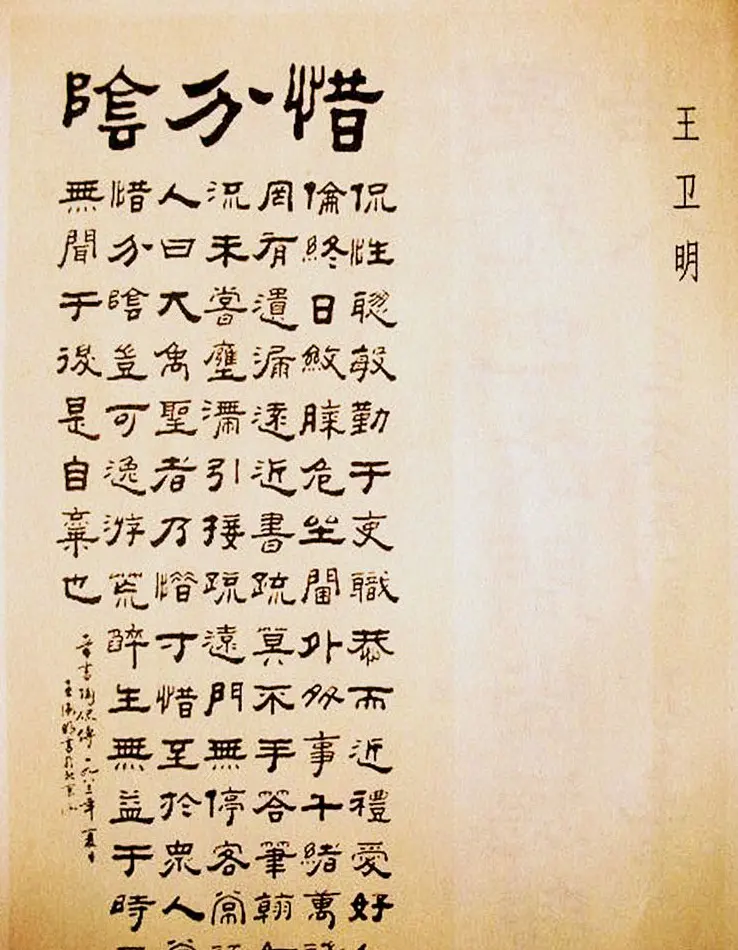 王卫明
惜分陰
侃性聰敏勤于吏職恭而近禮愛好
倫終日斂膝危坐閫外多事千緒萬
罔有遺漏遠近書疏莫不手答筆翰
流未嘗壅滯引接疏遠門無停客常
人曰大禹聖者乃惜寸惜至於衆人
惜分陰豈可逸游荒醉生無益于時
無聞于後是自棄也
晉書陶侃傳 一九八三年夏日
王衛明書於北京